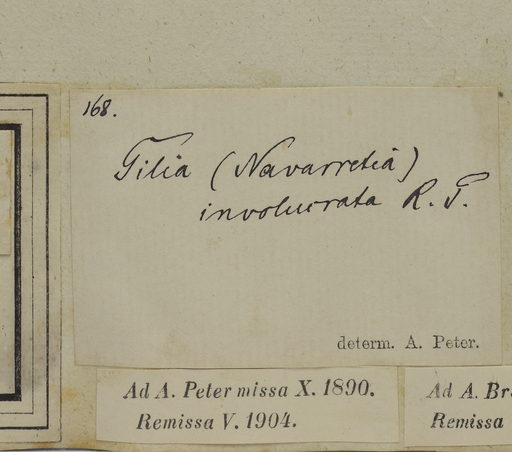 168.
Gilia (Navarretia)
involucrata R. P.
determ. A. Peter.
Ad A. Peter missa X. 1890.
Remissa V. 1904.
Ad A. Br
Remissa